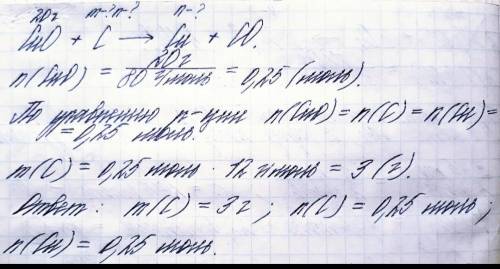 20г m-? n-? n-?
CuO + C → Cu + CO.
n(CuO) = 20г / 80 г/моль = 0,25 (моль).
По уравнению р-ции n(CuO) = n(C) = n(Cu) =
= 0,25 моль.
m(C) = 0,25 моль · 12 г/моль = 3 (г).
Ответ: m(C) = 3г; n(C) = 0,25 моль;
n(Cu) = 0,25 моль.